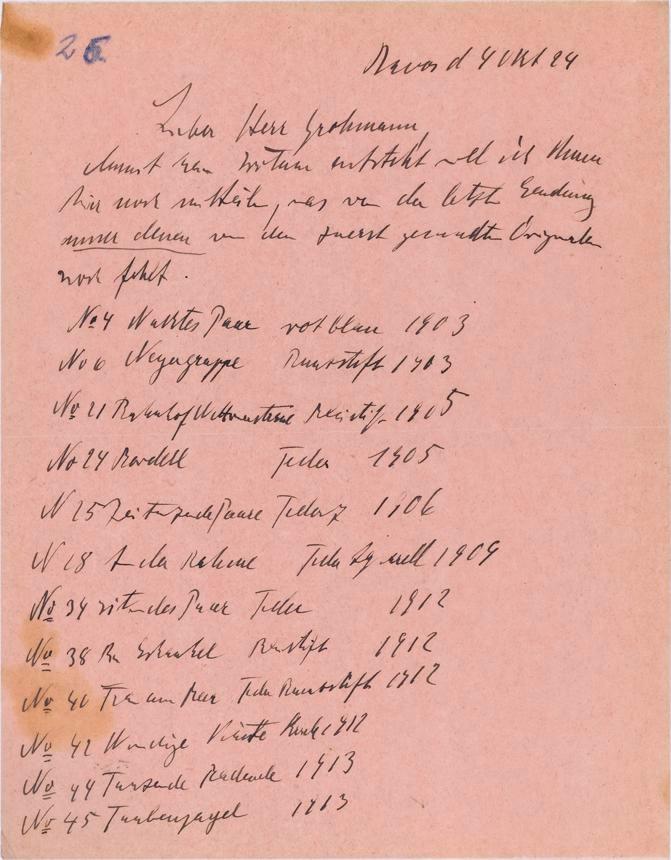 25.
Davos d 4 Okt 24
Lieber Herr Grohmann,
damit kein Irrtum entsteht will ich Ihnen
hier noch mitteilen, was von der letzten Sendung
unter denen von den zuerst gesandten Originalen
noch fehlt.
No 4 Nacktes Paar rotblau 1903
No 6 Negergruppe Blaustift 1903
No 21 Bahnhof 1905
No 24 Bordell Feder 1905
N 25 Paare Feder 1906
N 28 In der Feder Aquarell 1909
No 34 sitzendes Paar Feder 1912
No 38 Bleistift 1912
No 40 Frau am Meer Feder Blaustift 1912
No 42 1912
No 44 Tanzende 1913
No 45 Taubenjagd 1913